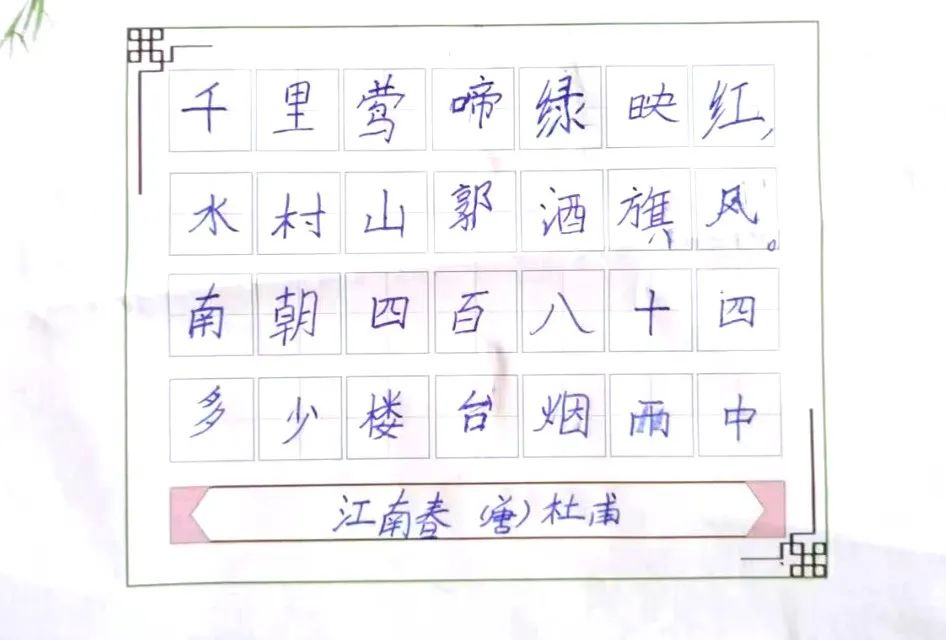 千里莺啼绿映红，
水村山郭酒旗风。
南朝四百八十四
多少楼台烟雨中
江南春（唐）杜甫